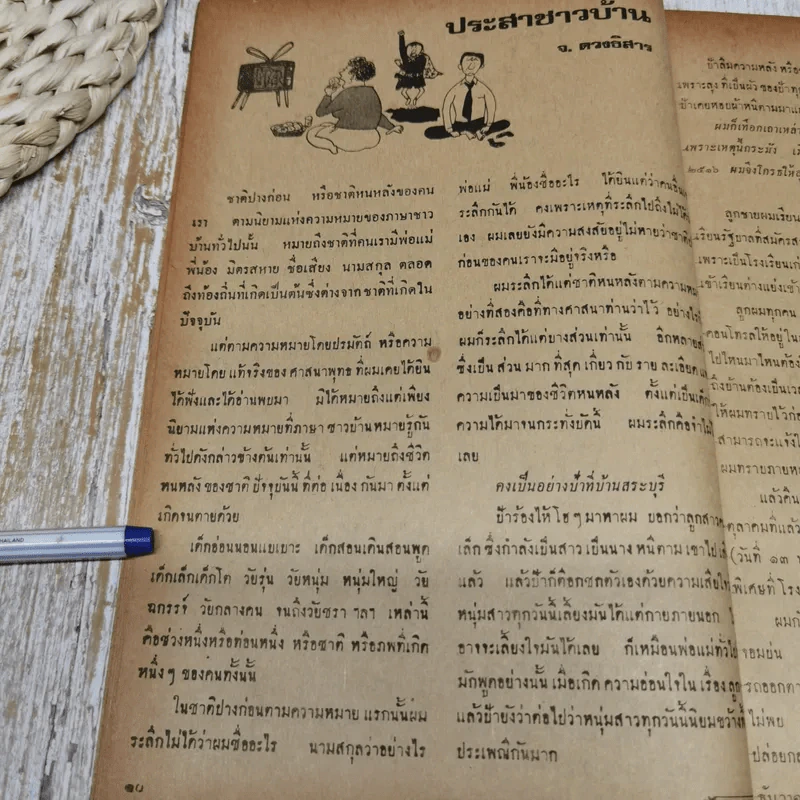 ประสาชาวบ้าน
จ. ดวงธิสาร
ชาติปางก่อน หรือชาติหนหลังของคน
เรา ตามนิยามแห่งความหมายของภาษาชาว
บ้านทั่วไปนั้น หมายถึงชาติที่คนเรามีพ่อแม่
พี่น้อง มิตรสหาย ชื่อเสียง นามสกุล ตลอด
ถึงท้องถิ่นที่เกิดเป็นต้นซึ่งต่างจากชาติที่เกิดใน
ปัจจุบัน
แต่ตามความหมายโดยปรมัตถ์ หรือความ
หมายโดย แท้จริงของ ศาสนาพุทธ ที่ผมเคยได้ยิน
ได้ฟังและได้อ่านพบมา มิได้หมายถึงแต่เพียง
นิยามแห่งความหมายที่ภาษา ชาวบ้านหมายรู้กัน
ทั่วไปดังกล่าวข้างต้นเท่านั้น แต่หมายถึงชีวิต
หนหลัง ของชาติ ปัจจุบันนี้ ที่ต่อ เนื่อง กันมา ตั้งแต่
เกิดจนตายด้วย
เด็กอ่อนนอนแบเบาะ เด็กสอนเดินสอนพูด
เด็กเล็กเด็กโต วัยรุ่น วัยหนุ่ม หนุ่มใหญ่ วัย
ฉกรรจ์ วัยกลางคน จนถึงวัยชรา ฯลฯ เหล่านี้
คือช่วงหนึ่งหรือท่อนหนึ่ง หรือชาติ หรือภพที่เกิด
หนึ่งๆ ของคนทั้งนั้น
ในชาติปางก่อนตามความหมาย แรกนั้นผม
ระลึกไม่ได้ว่าผมชื่ออะไร นามสกุลว่าอย่างไร
๑๐
พ่อแม่ พี่น้องชื่ออะไร ได้ยินแต่ว่าคนอื่น
ระลึกกันได้ คงเพราะเหตุที่ระลึกไปถึงไม่ได้
เอง ผมเลยยังมีความสงสัยอยู่ไม่หายว่าชาติ
ก่อนของคนเราจะมีอยู่จริงหรือ
ผมระลึกได้แต่ชาติหนหลังตามความ
อย่างที่สองคือที่ทางศาสนาท่านว่าไว้
ผมก็ระลึกได้แต่บางส่วนเท่านั้น อีกหลาย
ซึ่งเป็น ส่วน มาก ที่สุด เกี่ยว กับ ราย ละเอียด
ความเป็นมาของชีวิตหนหลัง ตั้งแต่เป็นเด็ก
ความได้มาจนกระทั่งบัดนี้ ผมระลึกคือจำไม่
เลย
คงเป็นอย่างป้าที่บ้านสระบุรี
ป้าร้องไห้โฮๆ มาหาผม บอกว่าลูกสาว
เล็ก ซึ่งกำลังเป็นสาว เป็นนาง หนีตาม เขาไป
แล้ว แล้วป้าก็ตีอกชกตัวเองด้วยความ
หนุ่มสาวทุกวันนี้เลี้ยงมันได้แต่กายภายนอก
อาจจะเลี้ยงใจมันได้เลย ก็เหมือนพ่อแม่ทั่วไป
มักพูดอย่างนั้น เมื่อเกิด ความอ่อนใจใน เรื่อง ลูก
แล้วป้ายังว่าต่อไปว่าหนุ่มสาวทุกวันนี้นิยมขวาง
ประเพณีกันมาก
ป้าลืมความหลัง หรือ
เพราะลุง ที่เป็นผัว ของป้าทุก
ป้าเคยหอบผ้าหนีตามมา
ผมก็เทือกเถาเหล่า
เพราะเหตุนี้กระมัง
๒๕๑๖ ผมจึงโกรธให้
ลูกชายผมเรียน
เรียนรัฐบาลที่สมัคร
เพราะเป็นโรงเรียน
เข้าเรียนต่างแย่งเข้า
ลูกผมทุกคน
คอนโทรลให้อยู่ใน
ไปไหนมาไหนต้อง
ถึงบ้านต้องเป็นเวลา
ให้ผมทราบไว้ก่อน
สามารถจะแจ้ง
ผมทราบภายหลัง
แล้วคืน
ตุลาคมที่แล้ว
(วันที่ ๑๓
พิเศษที่ โรง
ผมก็
จอมยน
รถออกตา
ไม่พบ
ปล่อย
THAILAND